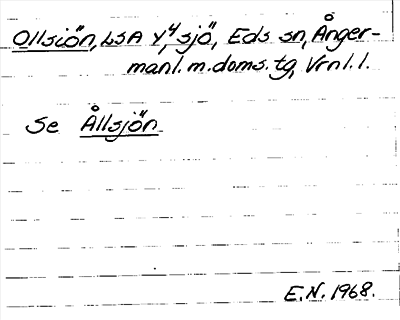 Ollsiön, LSA Y⁴, sjö, Eds sn, Ånger-
manl. m. doms. tg, Vrnl. l.
Se Ållsjön
E.N. 1968.